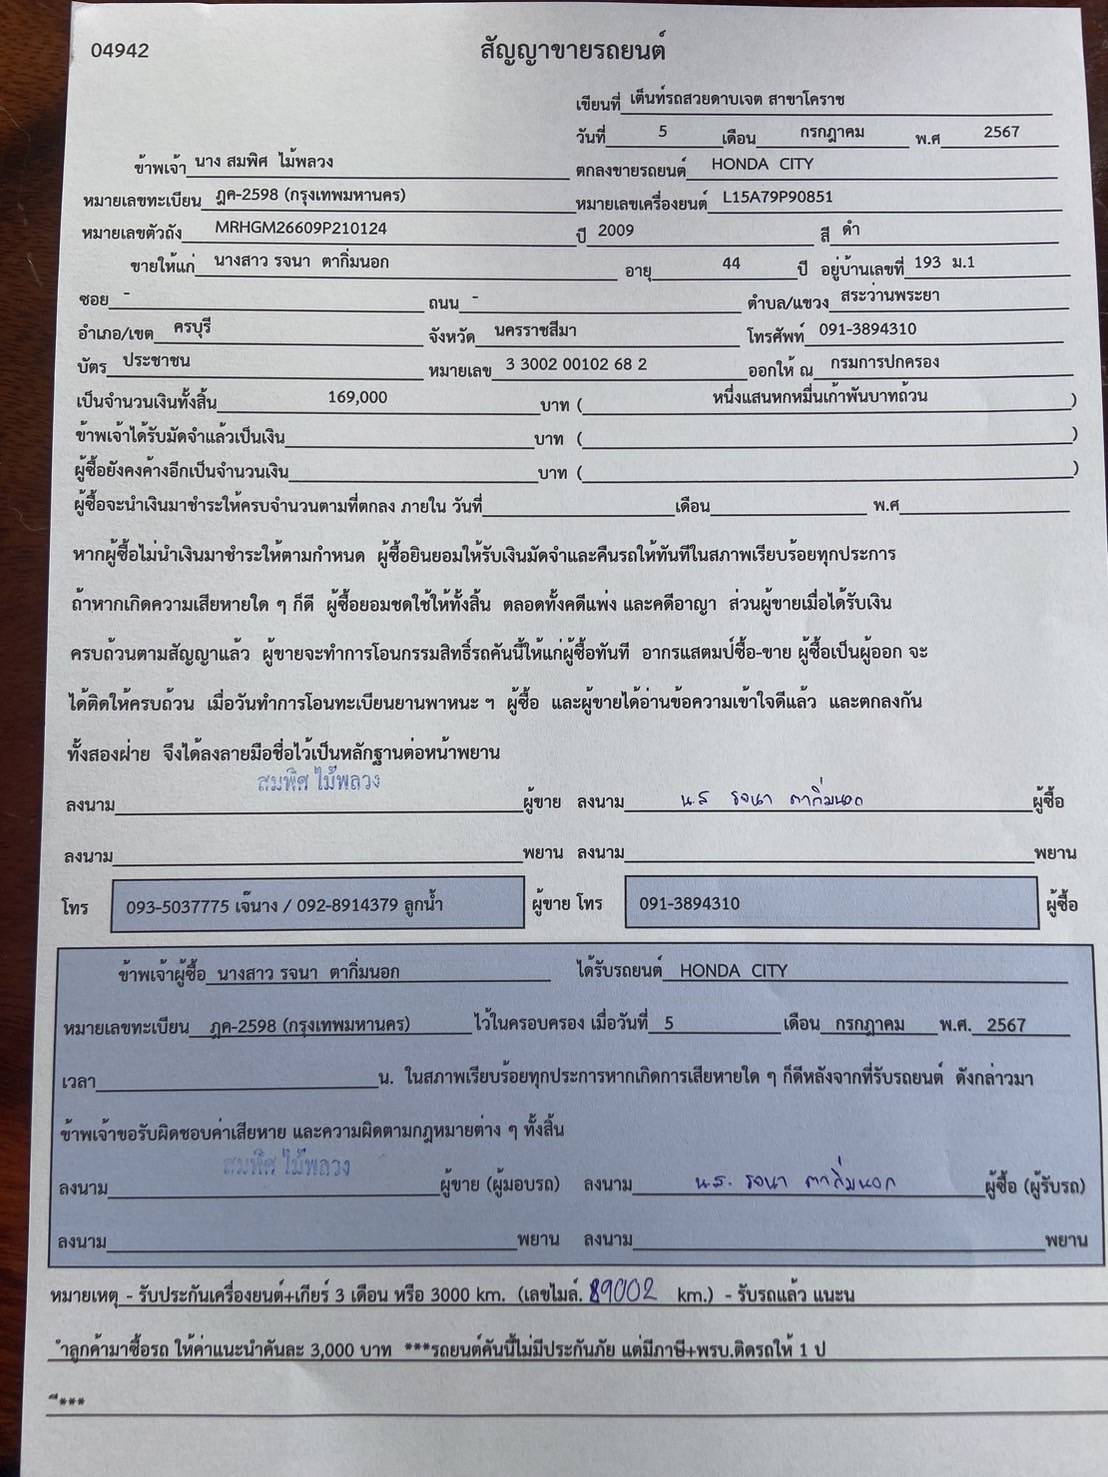 04942
สัญญาขายรถยนต์
เขียนที่ เต็นท์รถสวยดาบเจต สาขาโคราช
วันที่ 5 เดือน กรกฎาคม พ.ศ 2567
ข้าพเจ้า นาง สมพิศ ไม้พลวง ตกลงขายรถยนต์ HONDA CITY
หมายเลขทะเบียน ฎค-2598 (กรุงเทพมหานคร) หมายเลขเครื่องยนต์ L15A79P90851
หมายเลขตัวถัง MRHGM26609P210124 ปี 2009 สี ดำ
ขายให้แก่ นางสาว รจนา ตากิ่มนอก อายุ 44 ปี อยู่บ้านเลขที่ 193 ม.1
ซอย - ถนน - ตำบล/แขวง สระว่านพระยา
อำเภอ/เขต ครบุรี จังหวัด นครราชสีมา โทรศัพท์ 091-3894310
บัตร ประชาชน หมายเลข 3 3002 00102 68 2 ออกให้ ณ กรมการปกครอง
เป็นจำนวนเงินทั้งสิ้น 169,000 บาท ( หนึ่งแสนหกหมื่นเก้าพันบาทถ้วน )
ข้าพเจ้าได้รับมัดจำแล้วเป็นเงิน บาท ( )
ผู้ซื้อยังคงค้างอีกเป็นจำนวนเงิน บาท ( )
ผู้ซื้อจะนำเงินมาชำระให้ครบจำนวนตามที่ตกลง ภายใน วันที่ เดือน พ.ศ
หากผู้ซื้อไม่นำเงินมาชำระให้ตามกำหนด ผู้ซื้อยินยอมให้รับเงินมัดจำและคืนรถให้ทันทีในสภาพเรียบร้อยทุกประการ
ถ้าหากเกิดความเสียหายใด ๆ ก็ดี ผู้ซื้อยอมชดใช้ให้ทั้งสิ้น ตลอดทั้งคดีแพ่ง และคดีอาญา ส่วนผู้ขายเมื่อได้รับเงิน
ครบถ้วนตามสัญญาแล้ว ผู้ขายจะทำการโอนกรรมสิทธิ์รถคันนี้ให้แก่ผู้ซื้อทันที อากรแสตมป์ซื้อ-ขาย ผู้ซื้อเป็นผู้ออก จะ
ได้ติดให้ครบถ้วน เมื่อวันทำการโอนทะเบียนยานพาหนะ ฯ ผู้ซื้อ และผู้ขายได้อ่านข้อความเข้าใจดีแล้ว และตกลงกัน
ทั้งสองฝ่าย จึงได้ลงลายมือชื่อไว้เป็นหลักฐานต่อหน้าพยาน
ลงนาม สมพิศ ไม้พลวง ผู้ขาย ลงนาม น.ส รจนา ตากิ่มนอก ผู้ซื้อ
ลงนาม พยาน ลงนาม พยาน
โทร 093-5037775 เจ๊นาง / 092-8914379 ลูกน้ำ ผู้ขาย โทร 091-3894310 ผู้ซื้อ
ข้าพเจ้าผู้ซื้อ นางสาว รจนา ตากิ่มนอก ได้รับรถยนต์ HONDA CITY
หมายเลขทะเบียน ฎค-2598 (กรุงเทพมหานคร) ไว้ในครอบครอง เมื่อวันที่ 5 เดือน กรกฎาคม พ.ศ. 2567
เวลา น. ในสภาพเรียบร้อยทุกประการหากเกิดการเสียหายใด ๆ ก็ดีหลังจากที่รับรถยนต์ ดังกล่าวมา
ข้าพเจ้าขอรับผิดชอบค่าเสียหาย และความผิดตามกฎหมายต่าง ๆ ทั้งสิ้น
ลงนาม สมพิศ ไม้พลวง ผู้ขาย (ผู้มอบรถ) ลงนาม น.ส. รจนา ตากิ่มนอก ผู้ซื้อ (ผู้รับรถ)
ลงนาม พยาน ลงนาม พยาน
หมายเหตุ - รับประกันเครื่องยนต์+เกียร์ 3 เดือน หรือ 3000 km. (เลขไมล์. 89002 km.) - รับรถแล้ว แนะน
ำลูกค้ามาซื้อรถ ให้ค่าแนะนำคันละ 3,000 บาท ***รถยนต์คันนี้ไม่มีประกันภัย แต่มีภาษี+พรบ.ติดรถให้ 1 ป
ี***